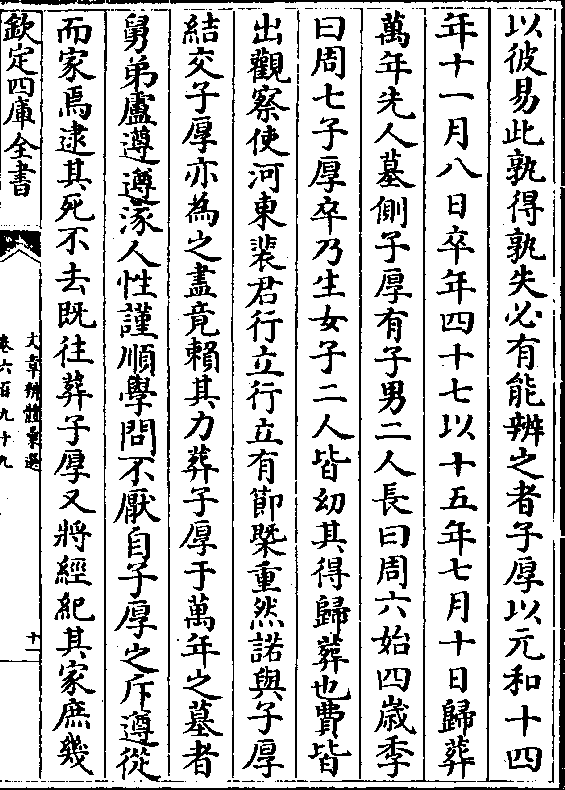 以彼易此孰得孰失必有能辨之者子厚以元和十四
年十一月八日卒年四十七以十五年七月十日歸葬
萬年先人墓側子厚有子男二人長曰周六始四歲季
曰周七子厚卒乃生女子二人皆幼其得歸葬也費皆
出觀察使河東裴君行立行立有節槩重然諾與子厚
結交子厚亦為之盡竟賴其力葬子厚于萬年之墓者
舅弟盧遵遵涿人性謹順學問不厭自子厚之斥遵從
而家焉逮其死不去既往葬子厚又將經紀其家庶幾
欽定四庫全書
文章辨體彙選
卷六百九十九
十一